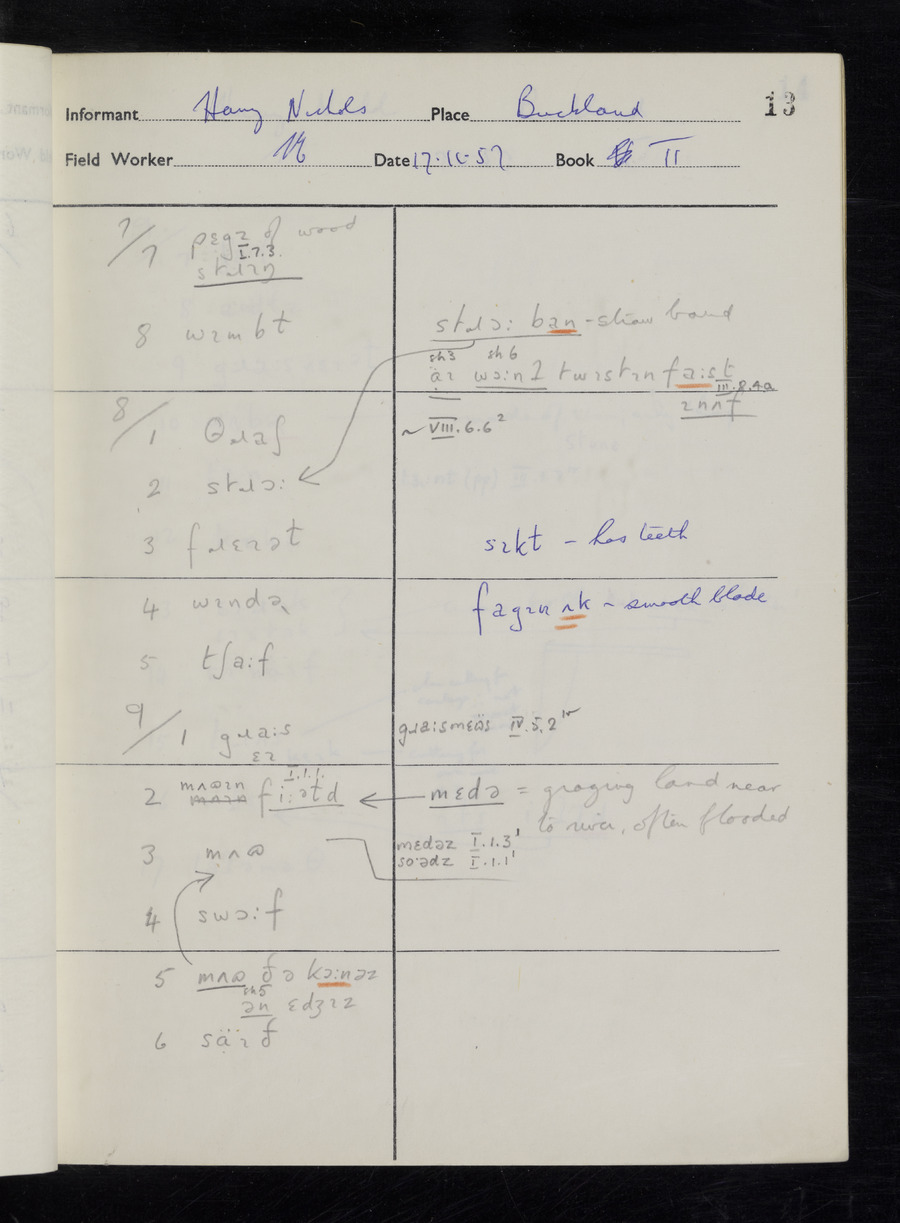 13
Informant Harry Nichols Place Buckland
Field Worker Date 17.10.57 Book II
7/7 pɛgz of wood
I.7.3.
8 wɪmbt
stɹɔ: ban - straw band
ɛh3 ɛh6
twɪstɪn fa:ɪst
III.8.4a
ɪnʌf
8/1 θɹaʃ
~ VIII.6.6²
2 stɹɔ:
3
sɪkt - has teeth
4 wɪndə
fagɪn ʌk - smooth blade
5 tʃa:f
9/1 gɹa:s
ɛɪ
gɹa:smɛäs IV.5.2
I.1.1.
2 fi:ətd
mɛdə = grazing land near
to river, often flooded
3 mʌɷ
mɛdəz I.1.3¹
so:ədz I.1.1¹
4 swɔ:f
5 mʌɷ ðə kɔ:nəz
ɛh5
ən ɛdʒɪz
6 säɪð